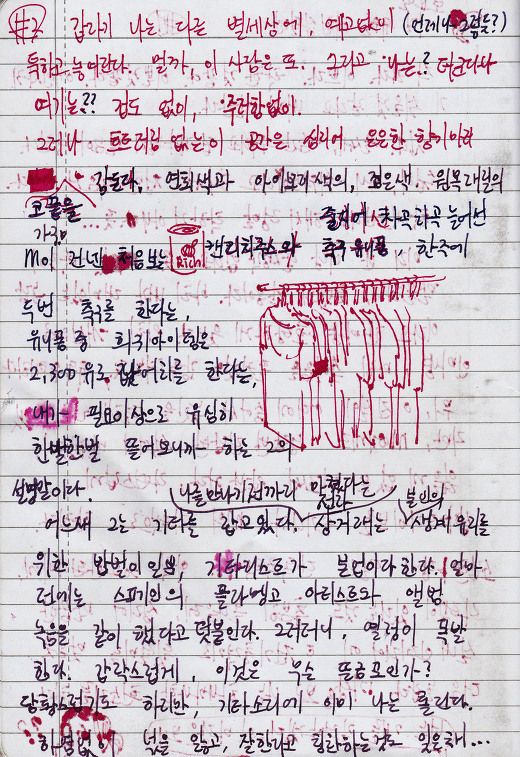 #2 갑자기 나는 다른 별세상에, 예고없이 (언제나 그랬듯?)
툭하고 놓여진다. 뭘까, 이 사람은 또. 그리고 나는? 더군다나
여기는?? 겁도 없이, 주저함없이.
그러나 흐트러짐 없는 이 공간은 심지어 은은한 향기마저
감돈다, 연회색과 아이보리색의, 짙은색 원목래일의
코끝을
가구
줄지어 차곡차곡 늘어선
Moi 건넨 처음보는 Rich 캔리치주스와 축구 유니폼, 한주에
두번 축구를 한다는,
유니폼 중 희귀아이템은
2,300유로 값어리를 한다는,
내가 필요이상으로 유심히
한벌한벌 뜯어보니까 하는 그의
설명말이다.
나를 만나기전까지 만졌다는
불빈의
어느새 그는 기타를 잡고있다. 상거래는 생계유지를
위한 밥벌이일뿐, 기타리스트가 본업이다한다. 얼마
전에는 스페인의 플라멩고 아티스트와 앨범
녹음을 같이 했다고 덧붙인다. 그러더니, 열정이 폭발
한다. 갑작스럽게, 이것은 무슨 뜬금포인가?
당황스럽기도 하지만, 기타소리에 이미 나는 홀린다.
하염없이 넋을 잃고, 잘한다고 칭찬하는것도 잊은채...